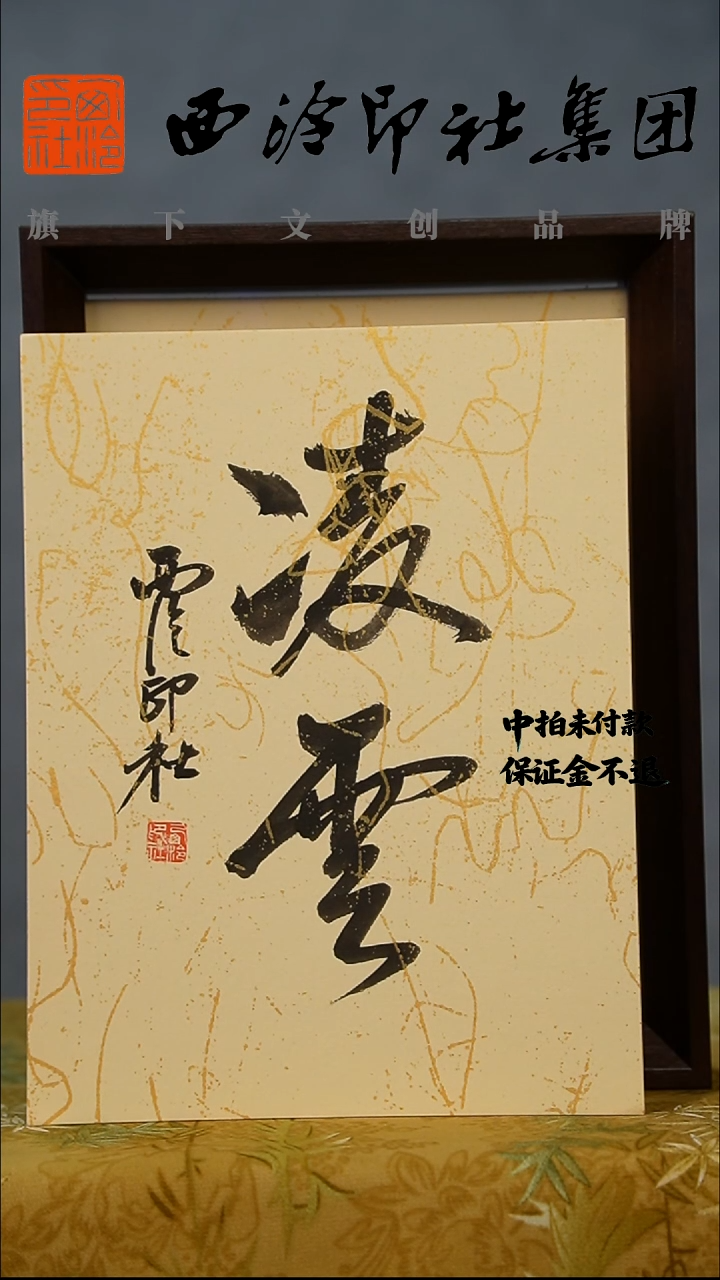 西泠印社
西泠印社集团
旗下文创品牌
凌雲
西泠印社
西泠印社
中拍未付款
保证金不退